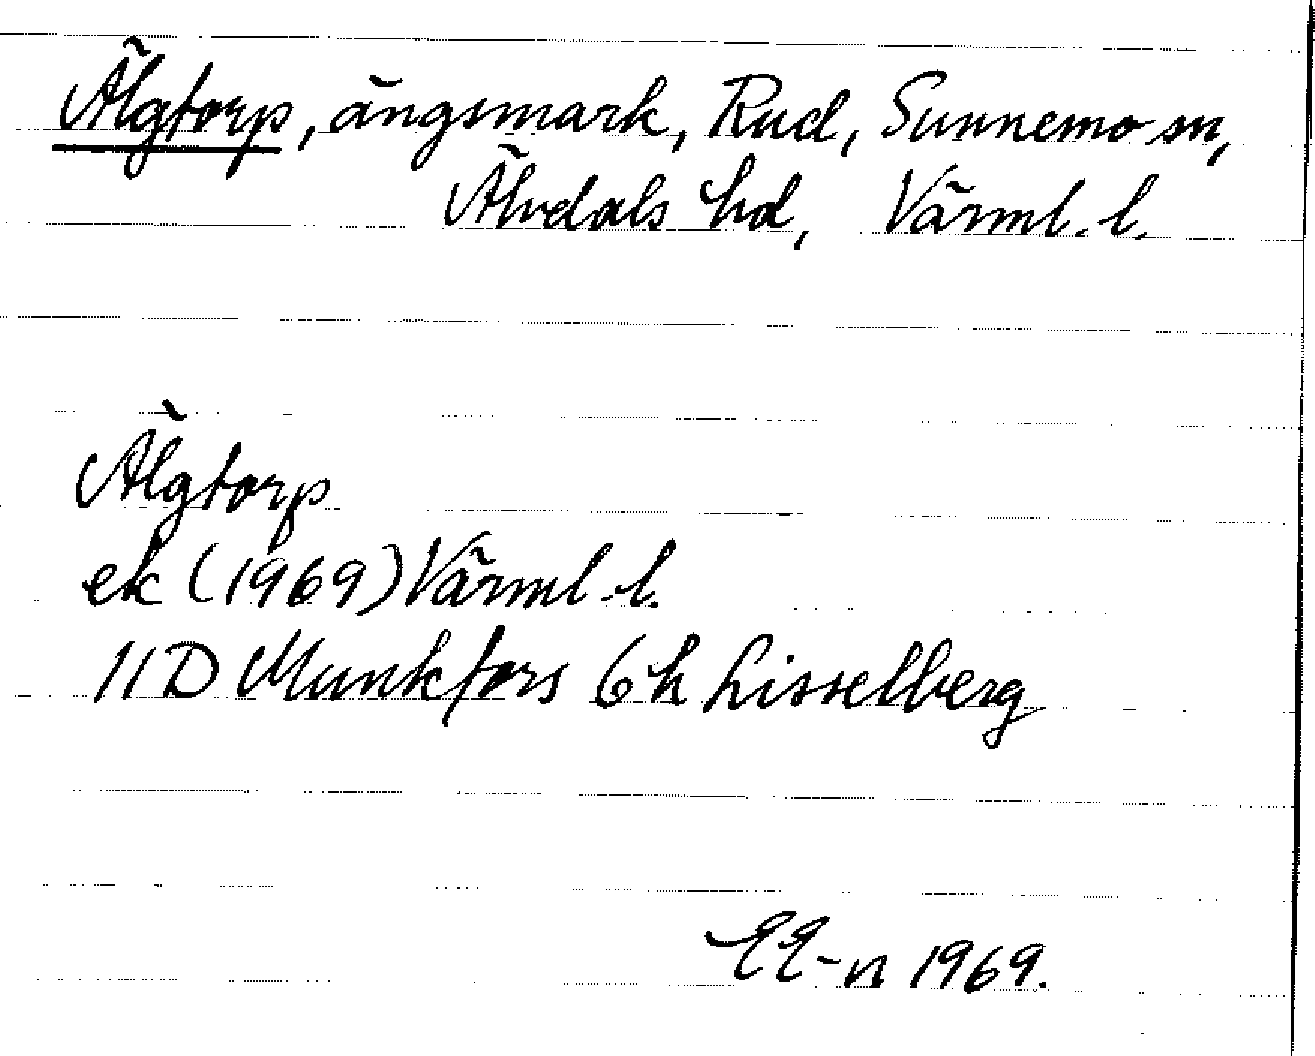 Älgtorp, ängsmark, Rud, Sunnemo sn,
Älvdals hd, Värml. l.
Älgtorp
ek (1969) Värml. l.
11D Munkfors 6h Lisselberg
EE-n 1969.